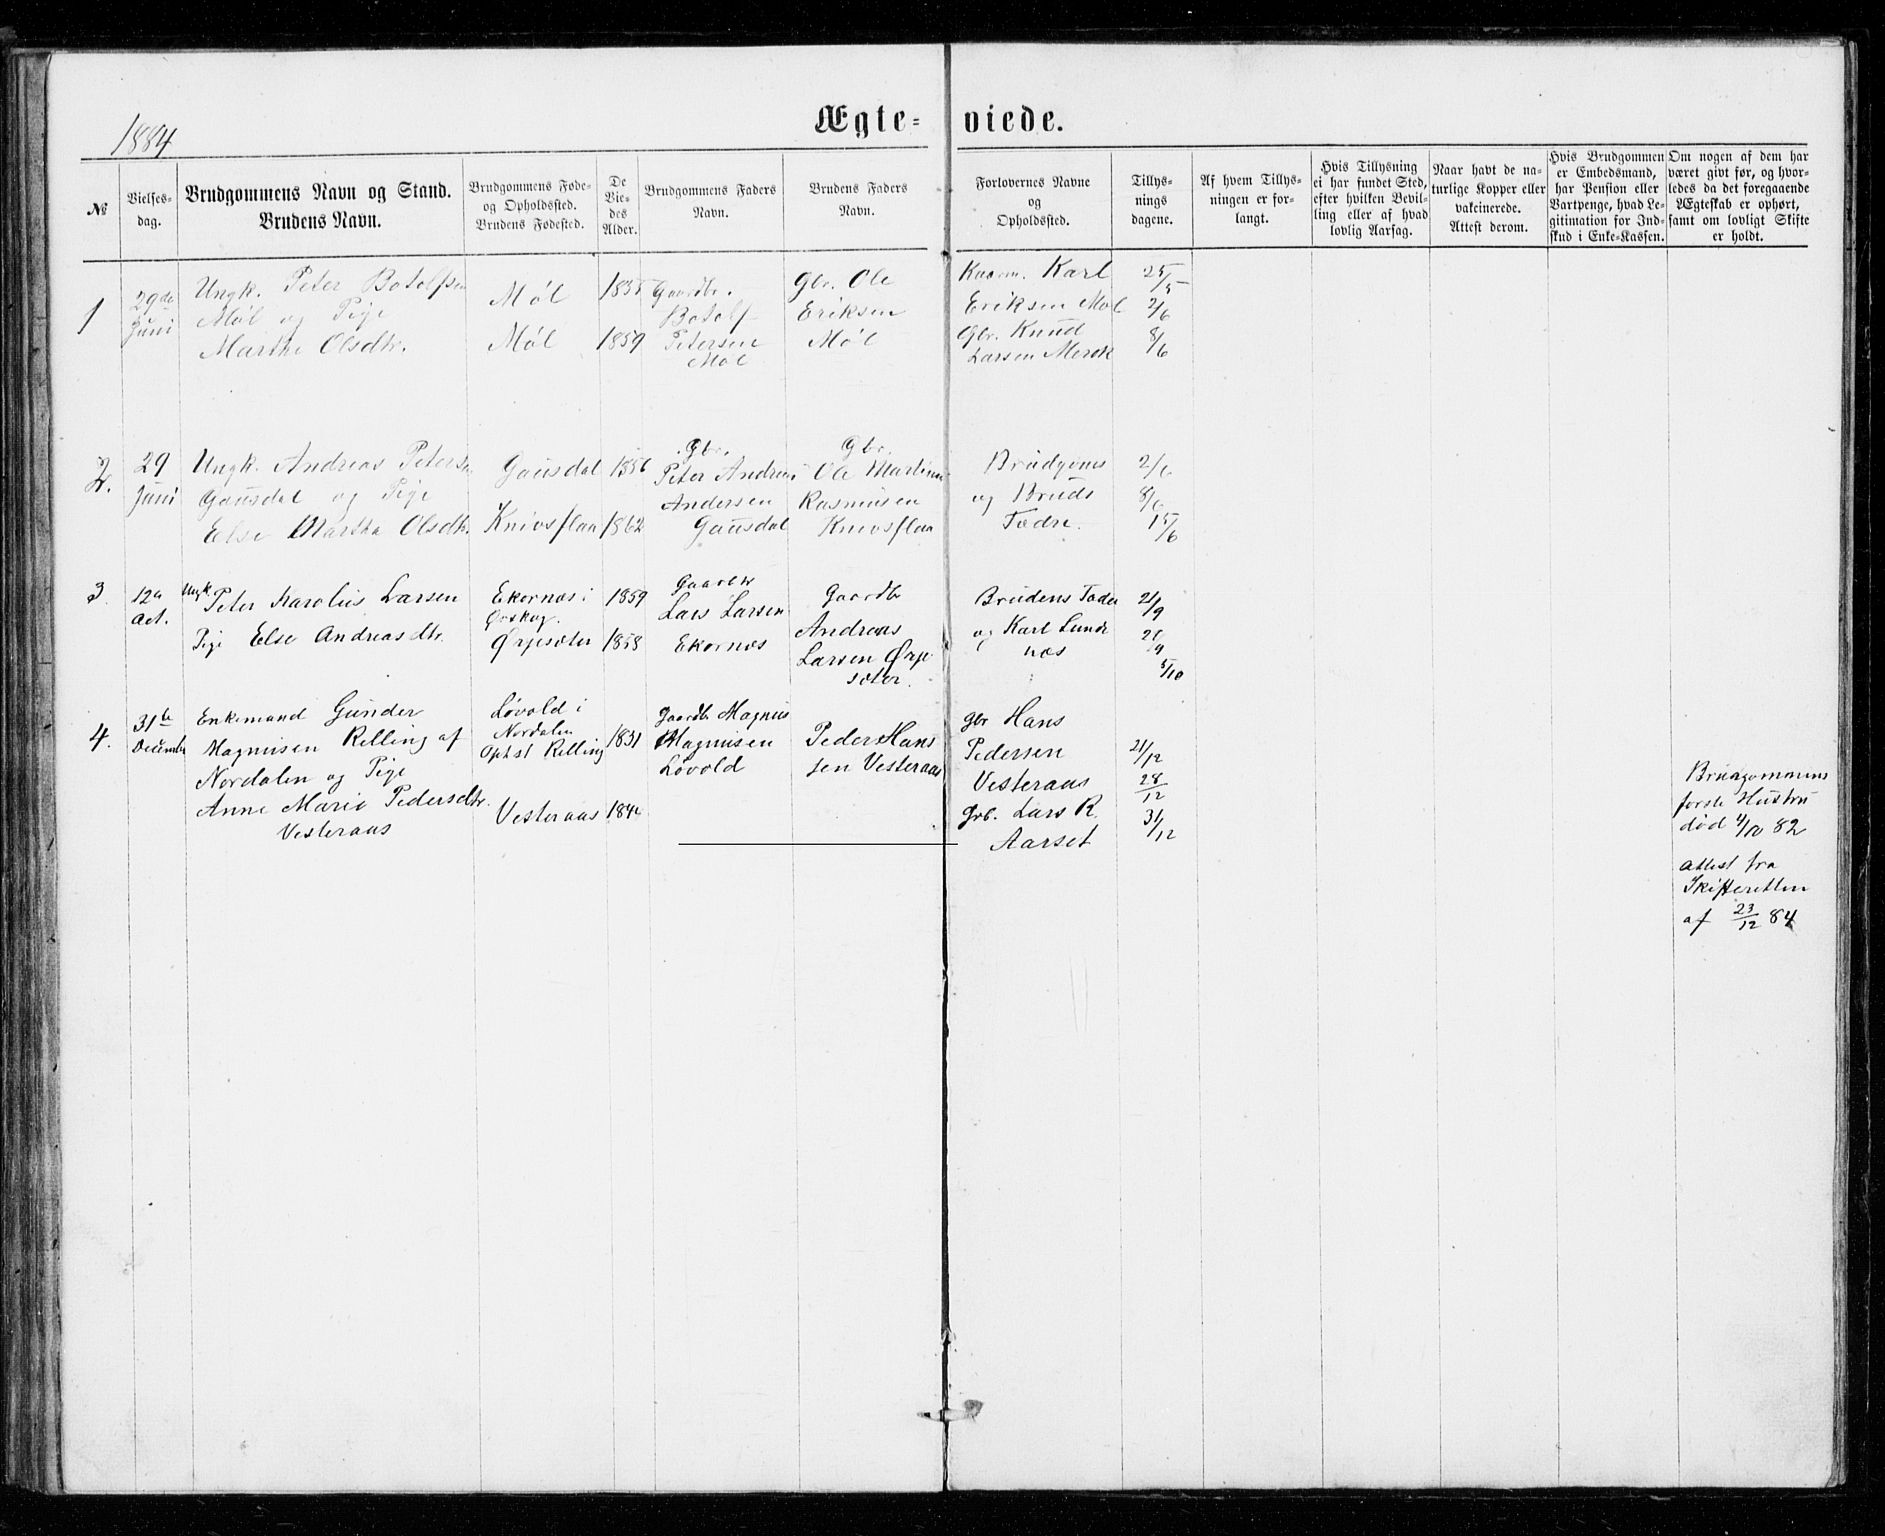 1884
Ægte- viede.
№
Vielses-
dag.
Brudgommens Navn og Stand.
Brudens Navn.
Brudgommens Føde-
og Opholdssted.
Brudens Fødested.
De
Vie-
des
Alder.
Brudgommens Faders
Navn.
Brudens Faders
Navn.
Forlovernes Navne
og
Opholdssted.
Tillys-
nings
dagene.
Af hvem Tillys-
ningen er for-
langt.
Hvis Tillysning
ei har fundet Sted,
efter hvilken Bevil-
ling eller af hvad
lovlig Aarsag.
Naar havt de na-
turlige Kopper eller
vakcinerede.
Attest derom.
Hvis Brudgommen
er Embedsmand,
har Pension eller
Vartpenge, hvad Le-
gitimation for Ind-
skud i Enke-Kassen.
Om nogen af dem har
været givt før, og hvor-
ledes da det foregaaende
Ægteskab er ophørt,
samt om lovligt Skifte
er holdt.
1
29de
Juni
Ungk. Peter Botolfsen
Møl og Pige
Marthe Olsdtr.
Møl
Møl
1859
Gaardbr.
Botolf
Petersen
Møl
Gbr. Ole
Eriksen
Møl
Karl
Eriksen Møl
Gbr. Knud
Larsen Merok
25/5
2/6
8/6
2.
29
Juni
Ungk. Andreas Petersen
Gausdal og Pige
Else Martha Olsdtr.
Gausdal
Knivsflaa
1856
1862
Gbr.
Peter Andreas
Andersen
Gausdal
Gbr.
Ole Martinus
Rasmusen
Knivsflaa
Brudgoms
og Bruds
Fædre.
2/6
8/6
15/6
3.
12te
Oct.
Ungk. Peter Karolus Larsen
Pige Else Andreasdtr.
Ekornæs i
Ørskog.
Ørjesæter
1859
1858
Gaardbr
Lars Larsen
Ekornæs
Gaardbr
Andreas
Larsen Ørje
sæter.
Brudens Fader
og Karl Lunde
næs
21/9
/9
5/10
4.
31te
December
Enkemand Gunder
Magnusen Relling af
Nordalen og Pige
Anne Marie Pedersdtr.
Vesteraas
Løvold i
Nordalen
Ophst Relling
Vesteraas
1831
Gaardbr Magnus
Magnusen
Løvold
Peder Hans
sen Vesteraas
gbr Hans
Pedersen
Vesteraas
Grb. Lars R.
Aarset
21/12
28/12
31/12
Brudgommens
første Hustru
død 4/10 82
Attest fra
Skifteretten
af 23/12 84